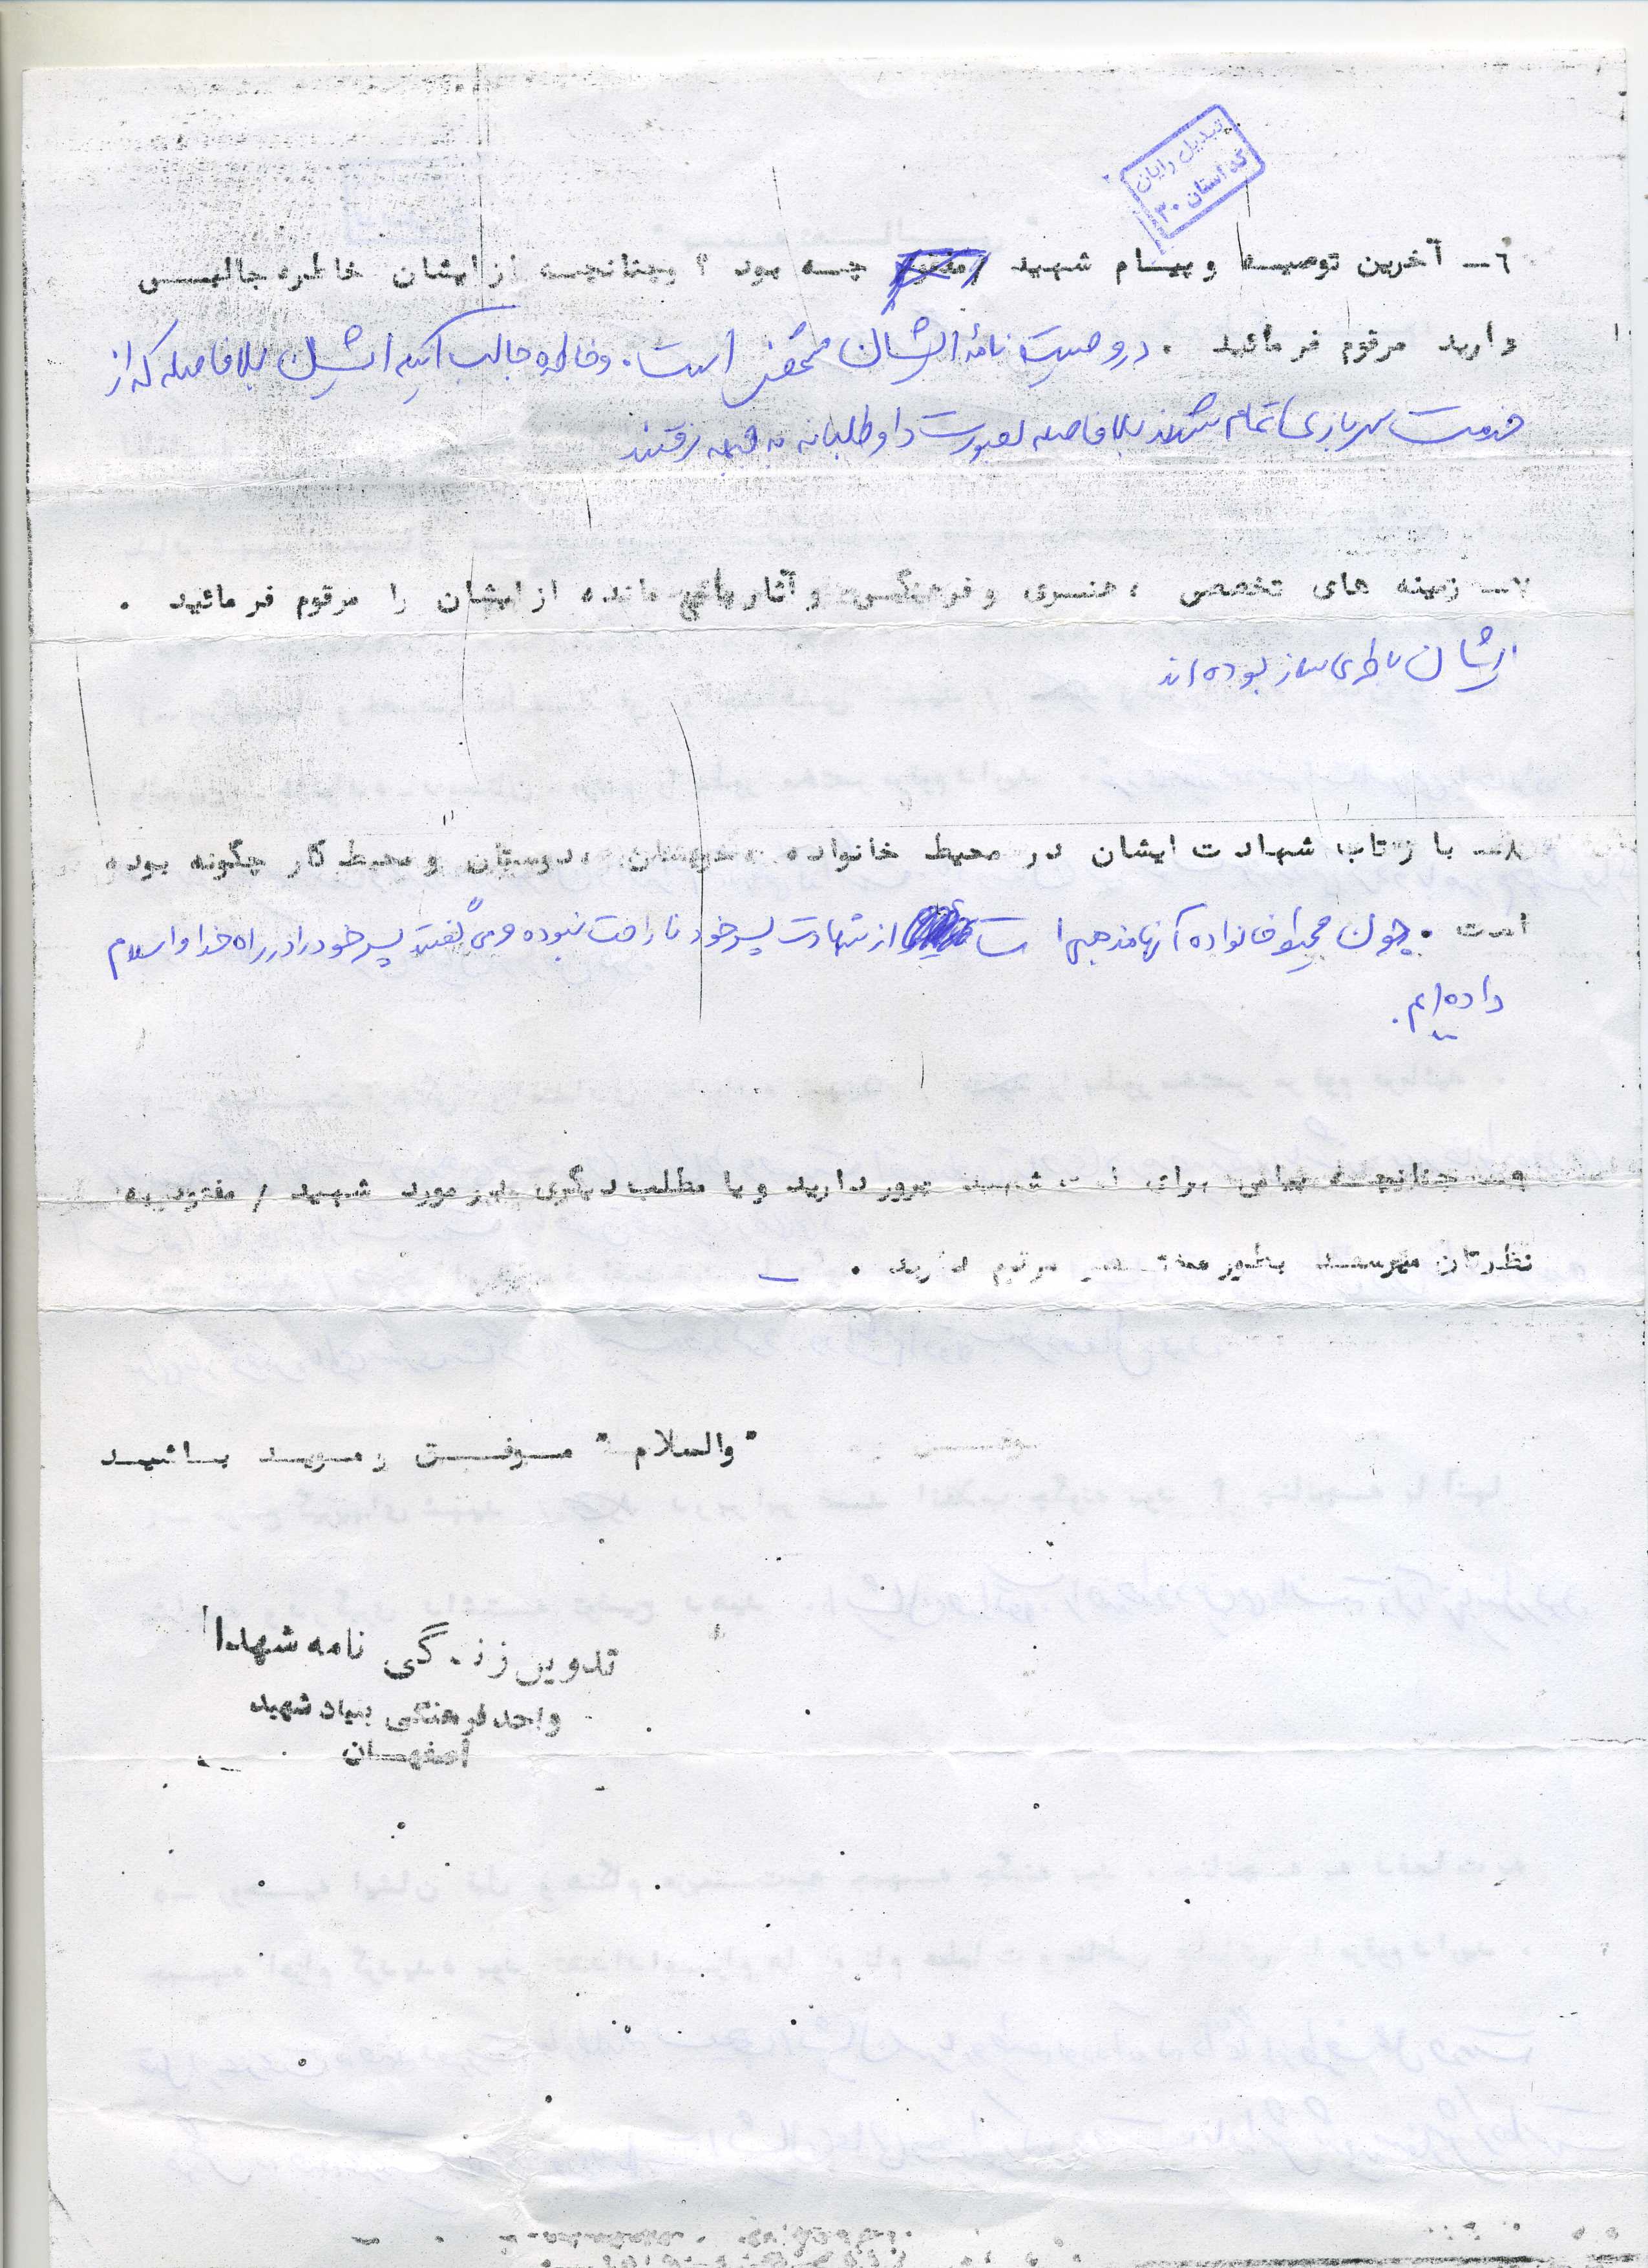 تبدیل رایان
کد استان ۳۰
۶ــ آخرین توصیه و پیام شهید / مفقود چه بود ؟ وچنانچه از ایشان خاطره جالبی
دارید مرقوم فرمائید . در وصیت نامهٔ ایشان است . و خاطره جالب اینکه ایشان بلافاصله که از
خدمت سربازی تمام شدند بلافاصله بصورت داوطلبانه به جبهه رفتند
۷ــ زمینه های تخصصی ، هنری و فرهنگی و آثار باقی مانده از ایشان را مرقوم فرمائید .
ایشان باطری ساز بوده اند
۸ــ بازتاب شهادت ایشان در محیط خانواده ، خویشان ، دوستان و محیط کار چگونه بوده
است . چون محیط خانواده آنها مذهبی است از شهادت پسر خود ناراحت نبوده و می گفتند پسر خود را در راه خدا و اسلام
داده ایم .
۹ــ چنانچه پیامی برای امت شهید پرور دارید و یا مطلب دیگری در مورد شهید / مفقود به
نظرتان میرسد بطور مختصر مرقوم دارید .
" والسلام " موفق و موید باشید
تدوین زندگی نامه شهدا
واحد فرهنگی بنیاد شهید
اصفهان